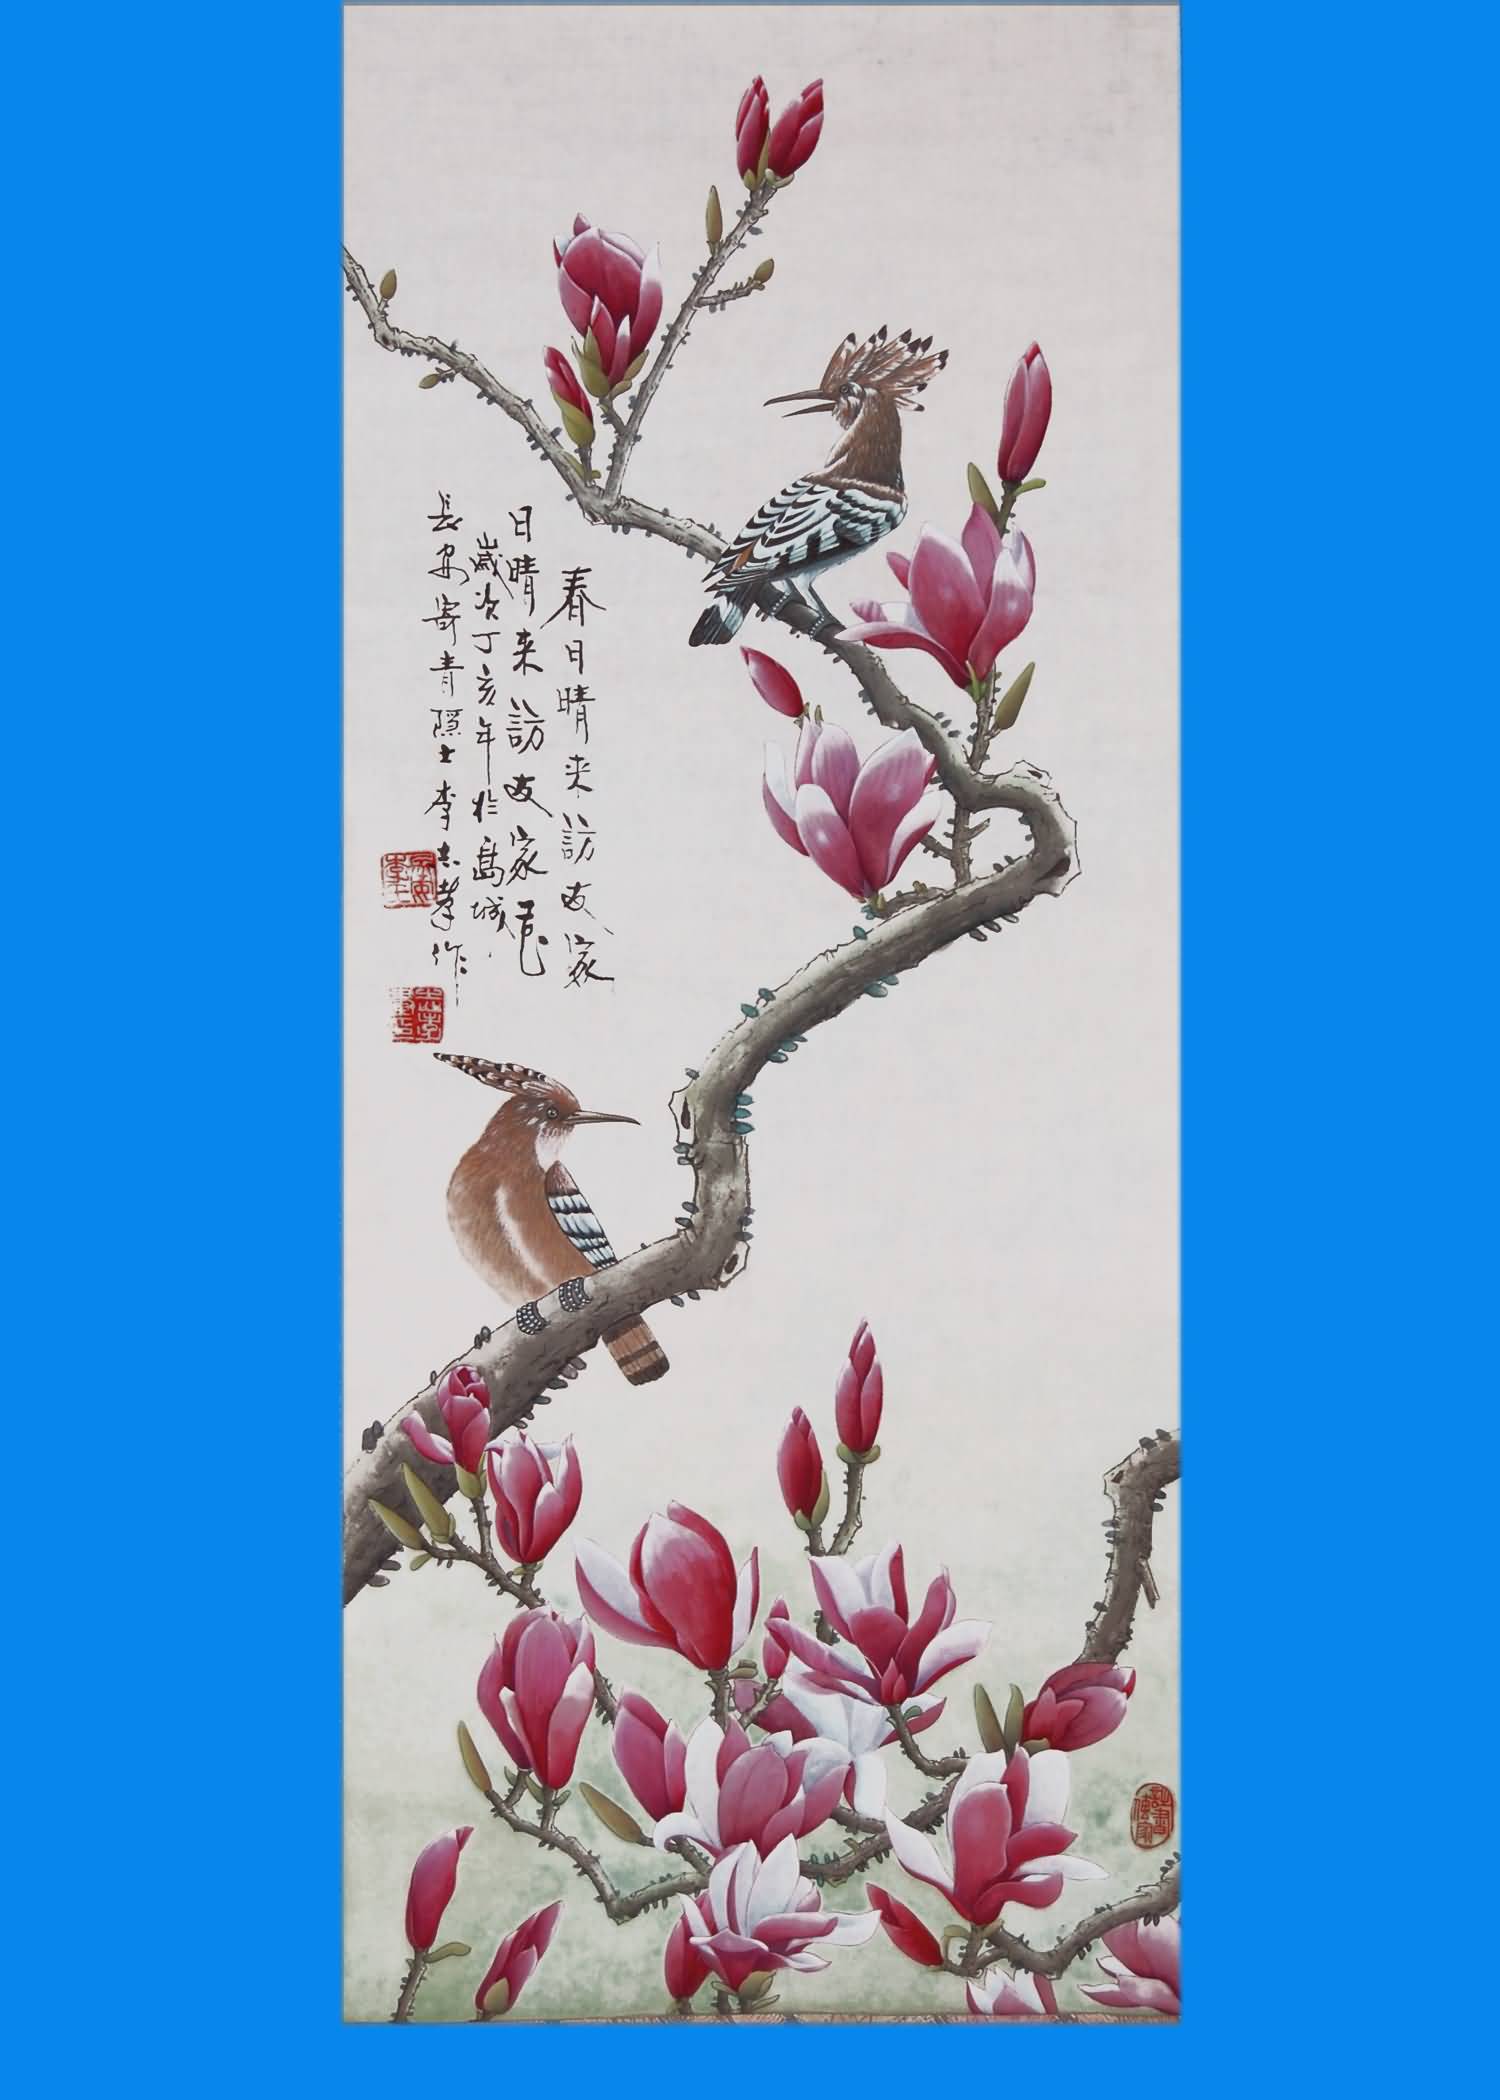 春日晴来訪友家
日晴来訪友家花
歲次丁亥年於島城
長安寄青隱士李志孝作